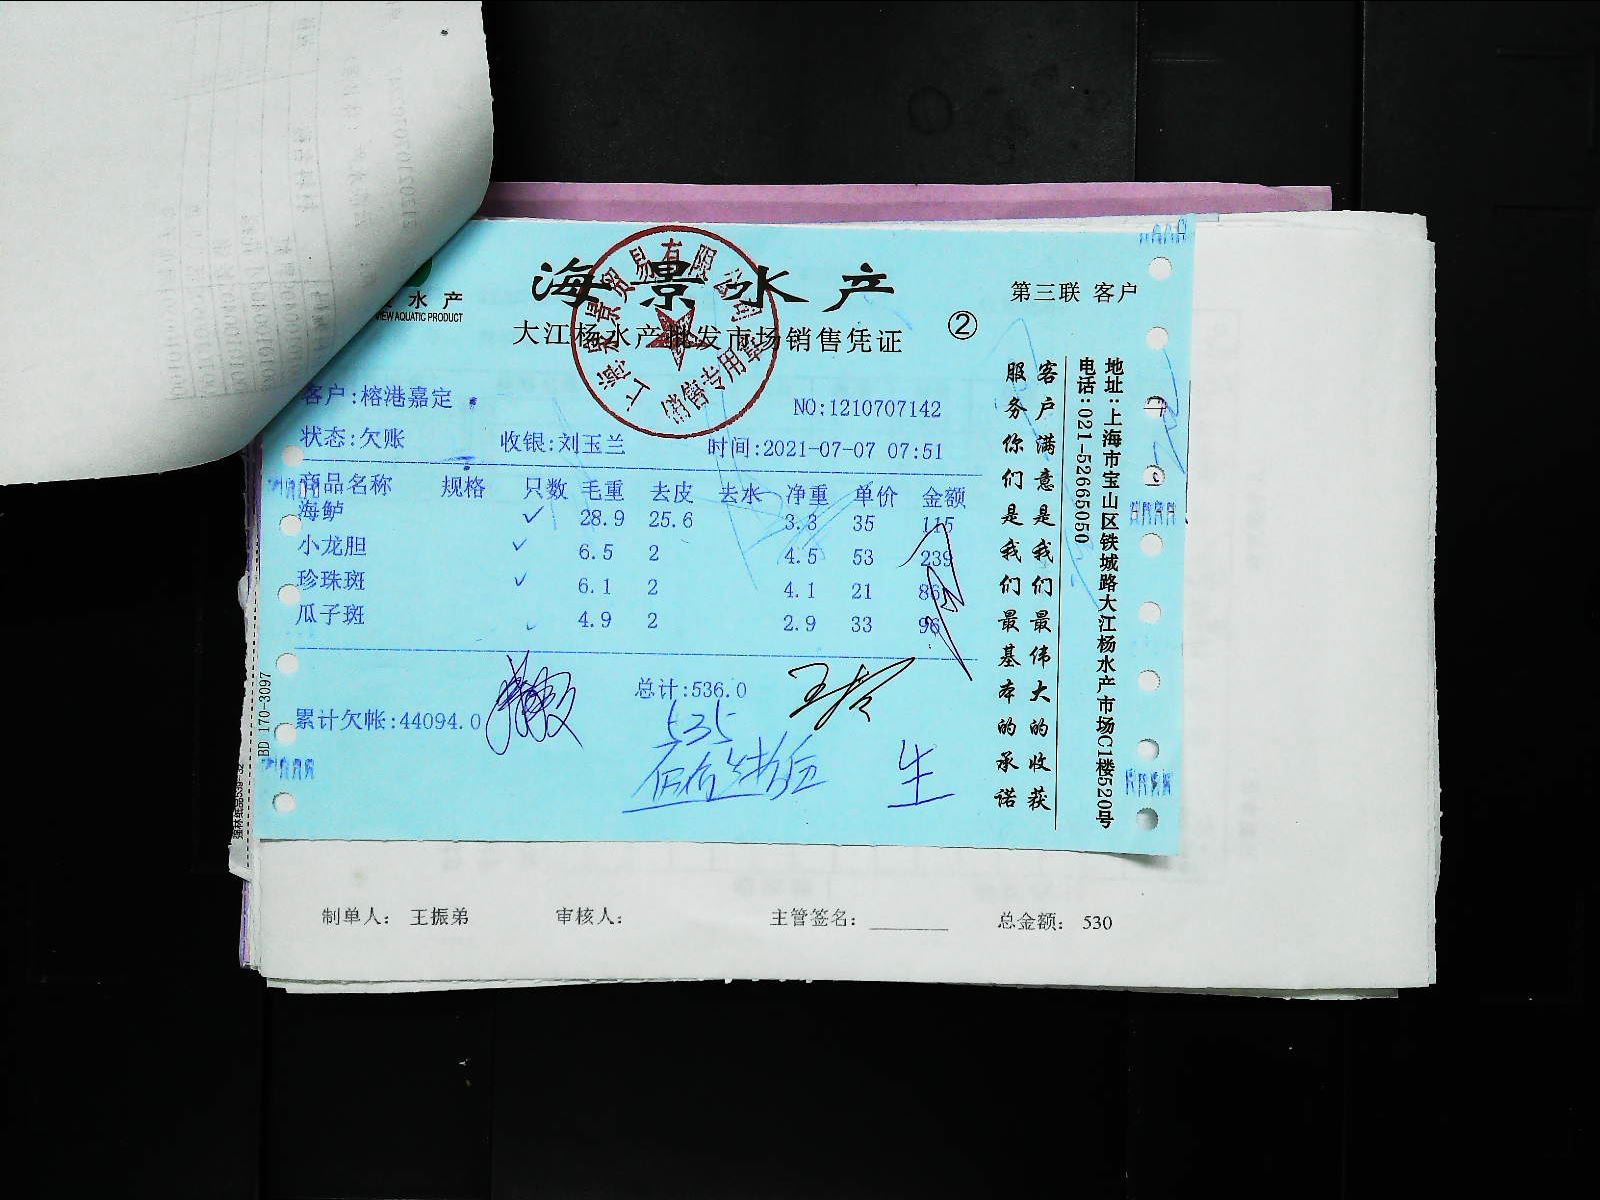 水产
VIEW AQUATIC PRODUCT
海景水产
大江杨水产批发市场销售凭证
②
第三联 客户
上海景贸易有限公司
销售专用章
客户:榕港嘉定
NO:1210707142
状态:欠账 收银:刘玉兰 时间:2021-07-07 07:51
商品名称 规格 只数 毛重 去皮 去水 净重 单价 金额
海鲈 ✓ 28.9 25.6 3.3 35 115
小龙胆 ✓ 6.5 2 4.5 53 239
珍珠斑 ✓ 6.1 2 4.1 21 86
瓜子斑 4.9 2 2.9 33 96
总计:536.0
累计欠帐:44094.0
535
生
客户满意是我们最伟大的收获
服务你们是我们最基本的承诺
地址:上海市宝山区铁城路大江杨水产市场C1楼520号
电话:021-52665050
BD 170-3097
制单人: 王振弟 审核人: 主管签名: 总金额: 530